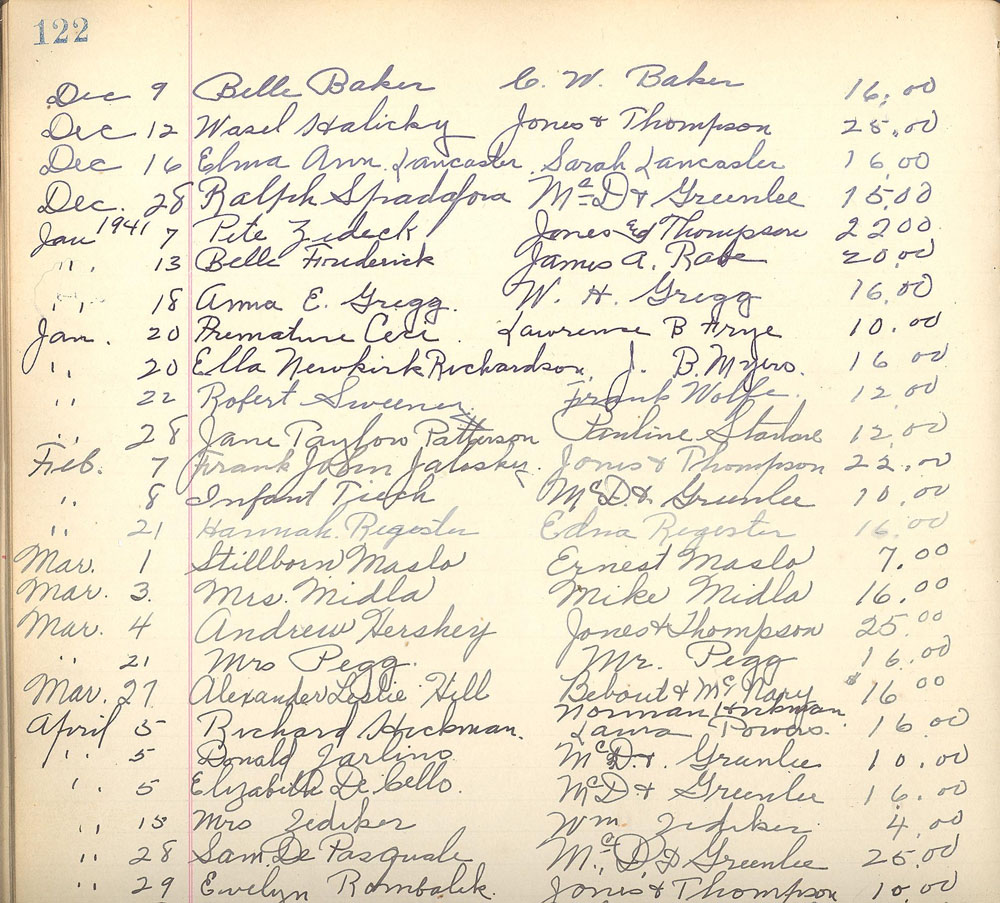 122
Dec 9 Belle Baker C. W. Baker 16.00
Dec 12 Wasel Halicky Jones & Thompson 25.00
Dec 16 Elma Ann Lancaster Sarah Lancaster 16.00
Dec. 28 Ralph Spadafora McD & Greenlee 15.00
Jan 1941 7 Pete Zedeck Jones & Thompson 22.00
" 13 Belle Frederick James A. 20.00
" 18 Anna E. Gregg. W. H. Gregg 16.00
Jan. 20 Premature Ceci Lawrence B Frye 10.00
" 20 Ella Newkirk Richardson. J. B. Myers. 16.00
" 22 Robert Sweeney Frank Wolfe. 12.00
" 28 Jane Taylor Patterson Pauline 12.00
Feb. 7 Frank John Jalosky. Jones & Thompson 22.00
" 8 Infant McD. & Greenlee 10.00
" 21 Hannah Regester Edna Regester 16.00
Mar. 1 Stillborn Maslo Ernest Maslo 7.00
Mar. 3. Mrs. Midla Mike Midla 16.00
Mar. 4 Andrew Hershey Jones & Thompson 25.00
" 21 Mrs Pegg. Mr. Pegg 16.00
Mar. 27 Alexander Leslie Hill Bebout & McNary 16.00
Norman Hickman
April 5 Richard Hickman. Laura Powers. 16.00
" 5 Donald Jarlino McD & Greenlee 10.00
" 5 Elizabeth De Cello. McD & Greenlee 16.00
" 15 Mrs Zediker Wm Zediker 4.00
" 28 Sam De Pasquale McD & Greenlee 25.00
" 29 Evelyn Rombalik. Jones & Thompson 10.00